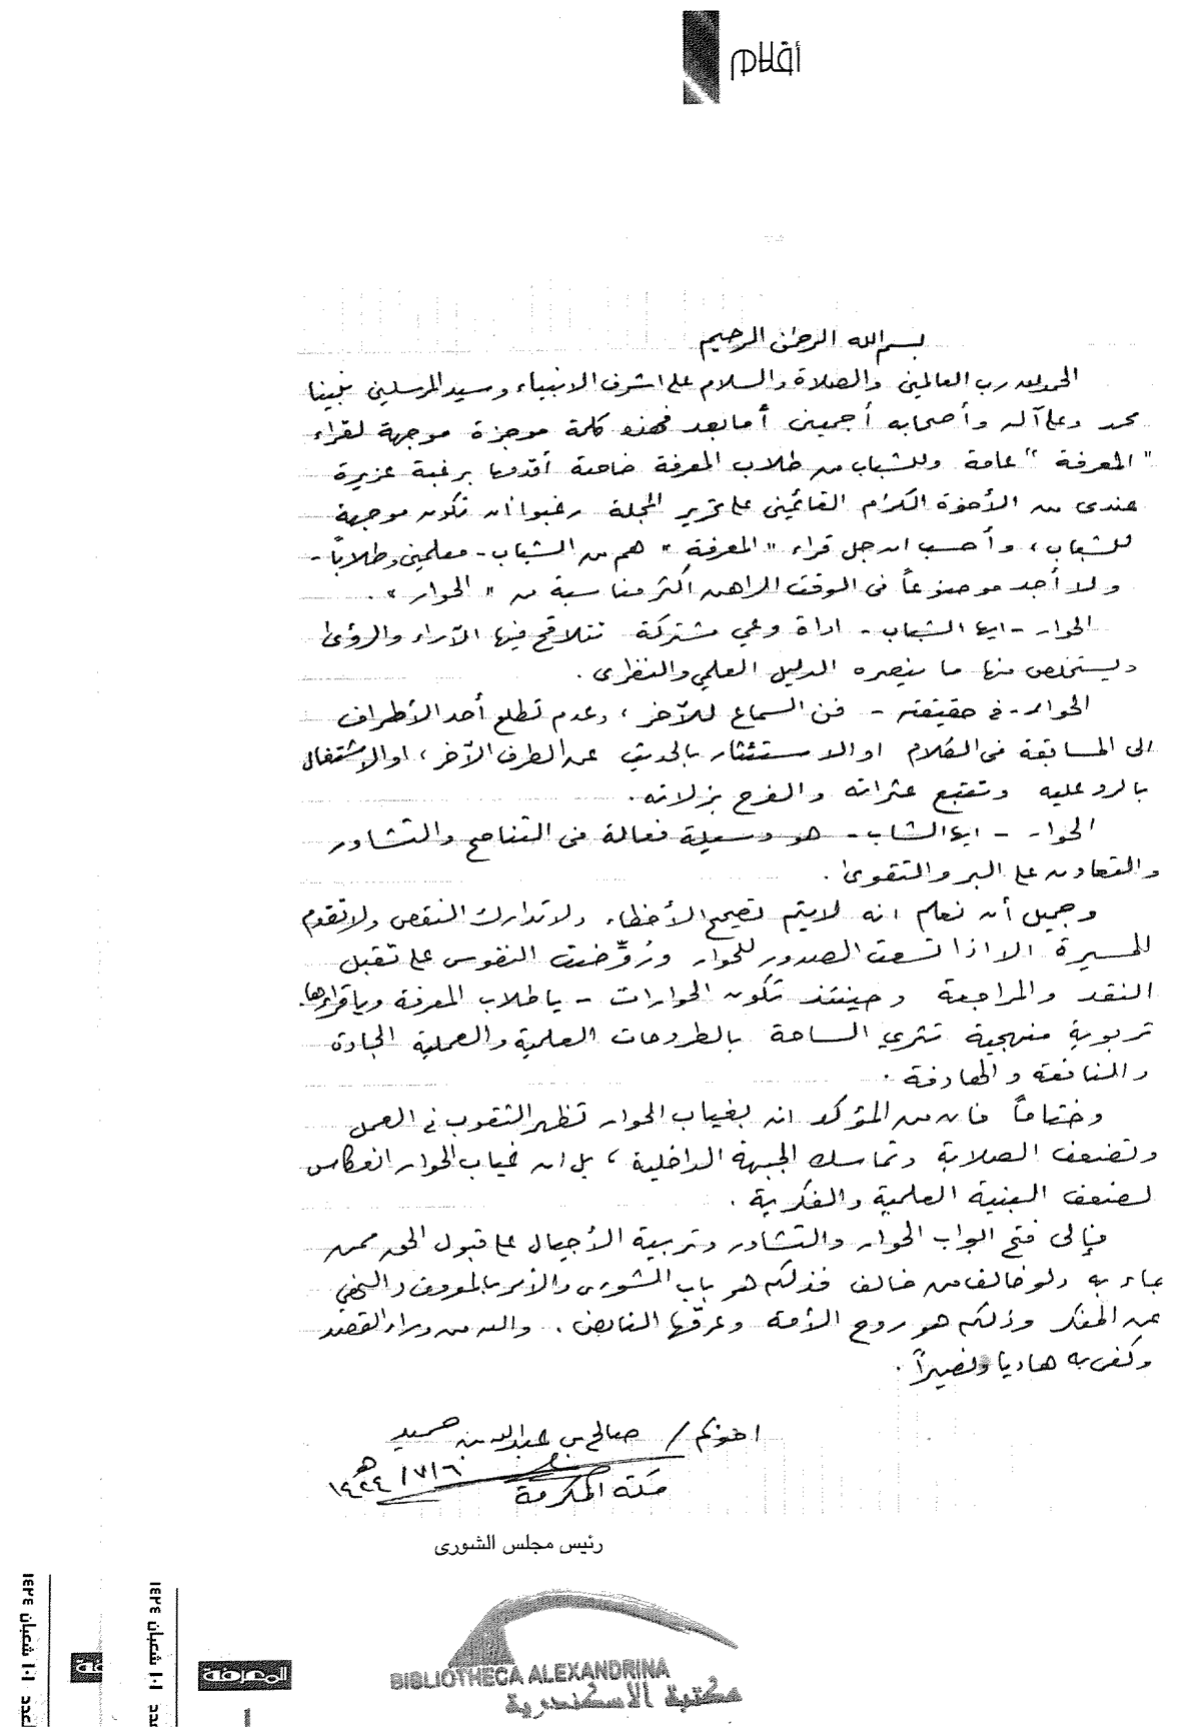 أقلام
بسم الله الرحمن الرحيم
الحمد لله رب العالمين والصلاة والسلام على اشرف الانبياء وسيد المرسلين نبينا
محمد وعلى آله وأصحابه أجمعين أما بعد فهذه كلمة موجزة موجهة لقراء
"المعرفة" عامة وللشباب من طلاب المعرفة خاصة أقدمها برغبة عزيزة
عندي من الأخوة الكرام القائمين على تحرير المجلة رغبوا أن تكون موجهة
للشباب، وأحسب ان جل قراء "المعرفة" هم من الشباب - معلمين وطلاباً -
ولا أجد موضوعاً في الوقت الراهن أكثر مناسبة من "الحوار".
الحوار - ايها الشباب - اداة وعي مشتركة تتلاقح فيها الآراء والرؤى
ويستخلص منها ما ينصره الدليل العلمي والنظرى.
الحوار - في حقيقته - فن السماع للآخر، وعدم تطلع أحد الأطراف
الى المسابقة في الكلام او الاستئثار بالحديث عن الطرف الآخر، او الاشتغال
بالرد عليه وتتبع عثراته والفرح بزلاته.
الحوار - ايها الشاب - هو وسيلة فعالة في التناصح والتشاور
والتعاون على البر والتقوى.
وجميل أن نعلم انه لا يتم تصحيح الأخطاء ولا تدارك النقص ولا تقدم
للمسيرة الا اذا اتسعت الصدور للحوار ورُوِّضت النفوس على تقبل
النقد والمراجعة وحينئذ تكون الحوارات - يا طلاب المعرفة ويا قراءها -
تربوية منهجية تثري الساحة بالطروحات العلمية والعملية الجادة
والنافعة والهادفة.
وختاماً فان من المؤكد انه بغياب الحوار تظهر الثقوب في العمل
وتضعف الصلابة وتماسك الجبهة الداخلية، بل ان غياب الحوار انعكاس
لضعف البنية العلمية والفكرية.
فإلى فتح ابواب الحوار والتشاور وتربية الأجيال على قبول الحق ممن
جاء به ولو خالف من خالف فذلكم هو باب الشورى والأمر بالمعروف والنهي
عن المنكر وذلكم هو روح الأمة وعرقها النابض. والله من وراء القصد
وكفى به هاديا ونصيراً.
اخوكم / صالح بن عبدالله بن حميد
١٤٢٤/٧/٦ هـ
مكة المكرمة
رئيس مجلس الشورى
BIBLIOTHECA ALEXANDRINA
مكتبة الاسكندرية
المعرفة
١٠١ شعبان ١٤٢٤
١٠١ شعبان ١٤٢٤